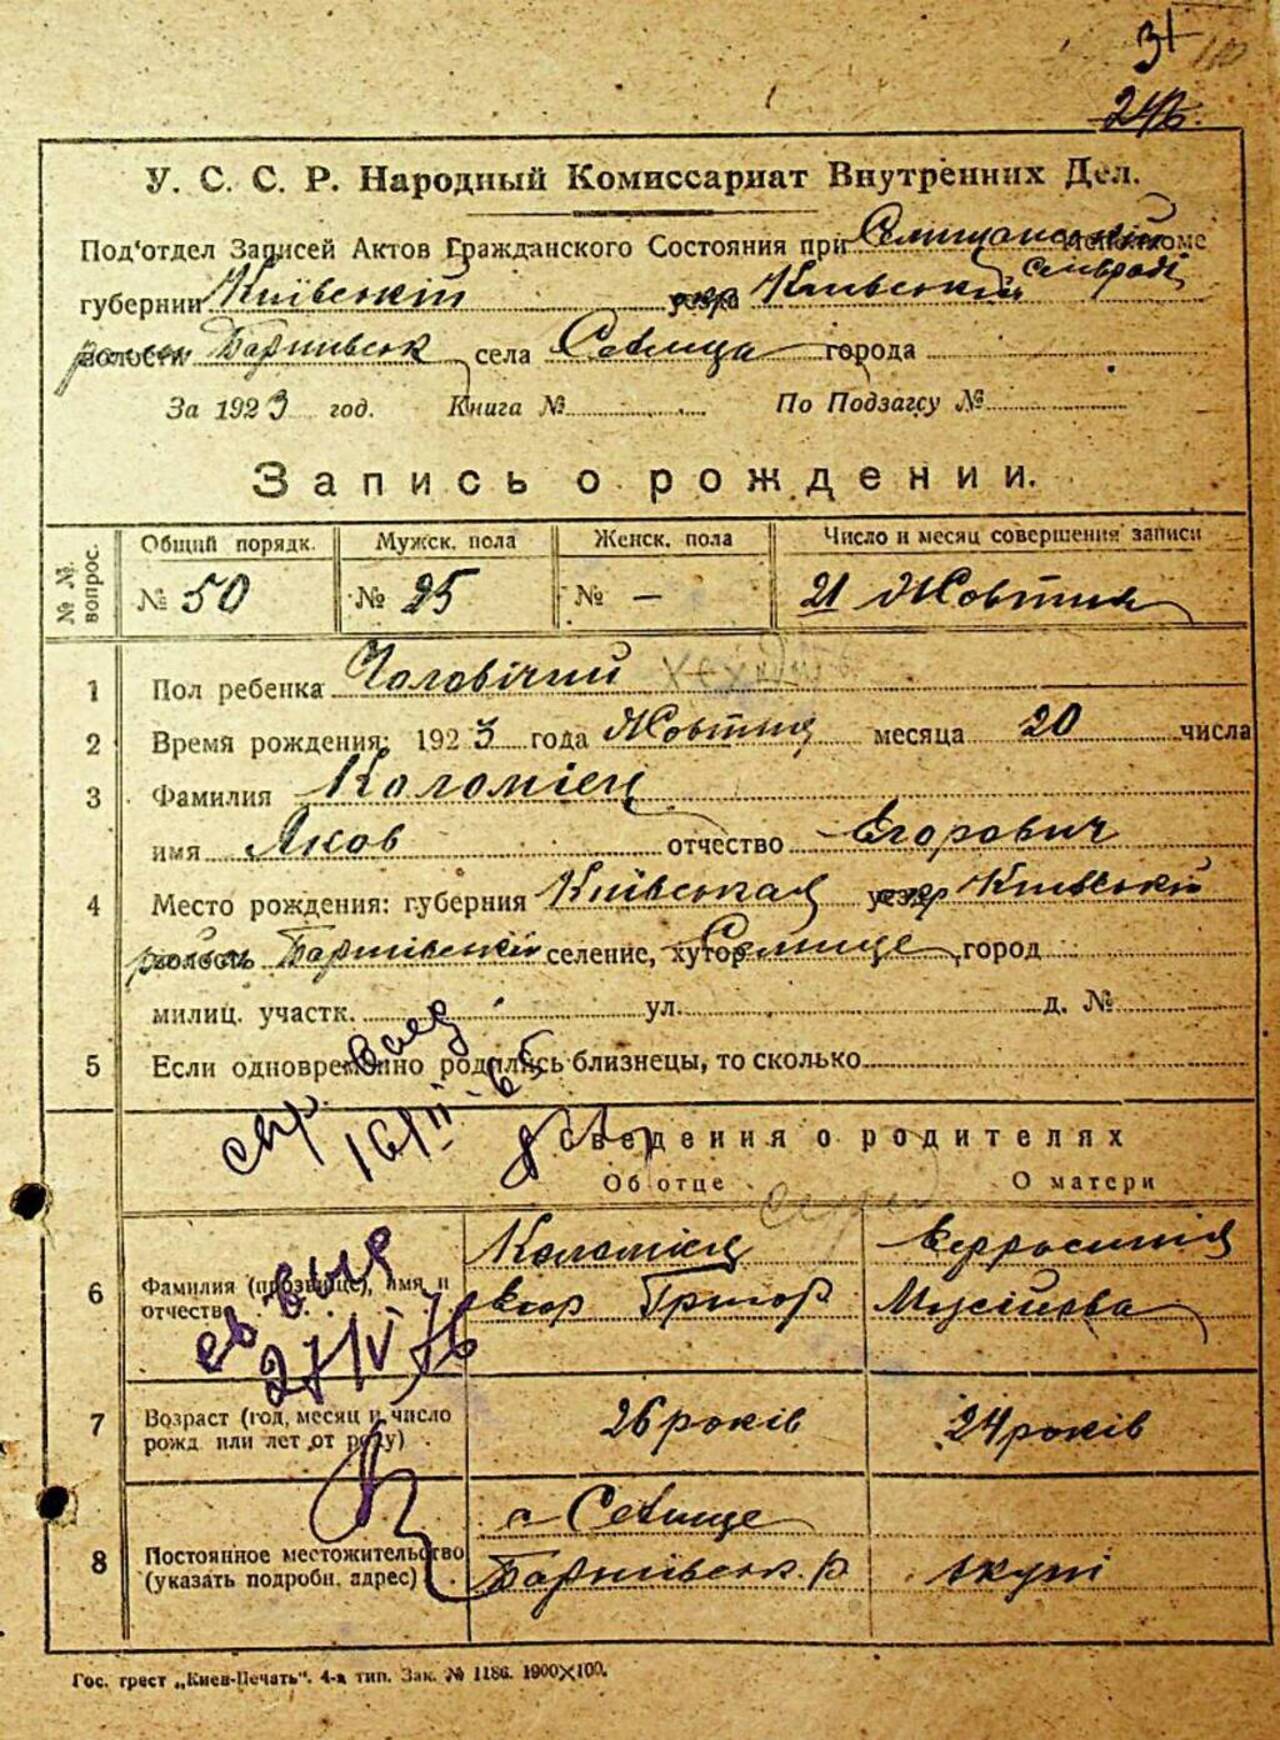 31
У. С. С. Р. Народный Комиссариат Внутренних Дел.
Под'отдел Записей Актов Гражданского Состояния при Селищанській Исполкоме
сельраді
губернии Київській уезда Київській
волости Баришівськ села Селища города
За 1923 год. Книга № По Подзагсу №
Запись о рождении.
№ №. вопрос. Общий порядк. Мужск. пола Женск. пола Число и месяц совершения записи
№ 50 № 25 № — 21 Жовтня
1 Пол ребенка Чоловічий
2 Время рождения: 1923 года Жовтня месяца 20 числа
3 Фамилия Коломієц
имя Яков отчество Егорович
4 Место рождения: губерния Київськая уезд Київській
волость Баришівській селение, хутор Селище город
милиц. участк. ул. д. №
5 Если одновременно родились близнецы, то сколько
16/II-65
Сведения о родителях
Об отце О матери
6 Фамилия (прозвище), имя и отчество Коломієц Єгор Григор Єфросинія Мусіївва
27/IV 76
7 Возраст (год, месяц и число рожд или лет от роду) 26 років 24 років
8 Постоянное местожительство (указать подробн. адрес) с Селище Баришівськ. р. вкупі
Гос. трест „Киев-Печать“. 4-я тип. Зак. № 1186. 1900×100.